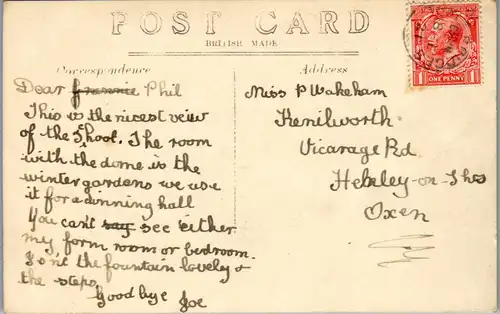 POST CARD
BRITISH MADE
Correspondence
Address
Dear frannie Phil
This is the nicest view
of the School. The room
with the dome is the
winter gardens we use
it for a dinning hall
You can't say see either
my form room or bedroom.
Isn't the fountain lovely &
the steps.
Good bye Joe
Miss P Wakeham
Kenilworth
Vicarage Rd
Henley-on-Thos
Oxen
POSTAGE
ONE PENNY